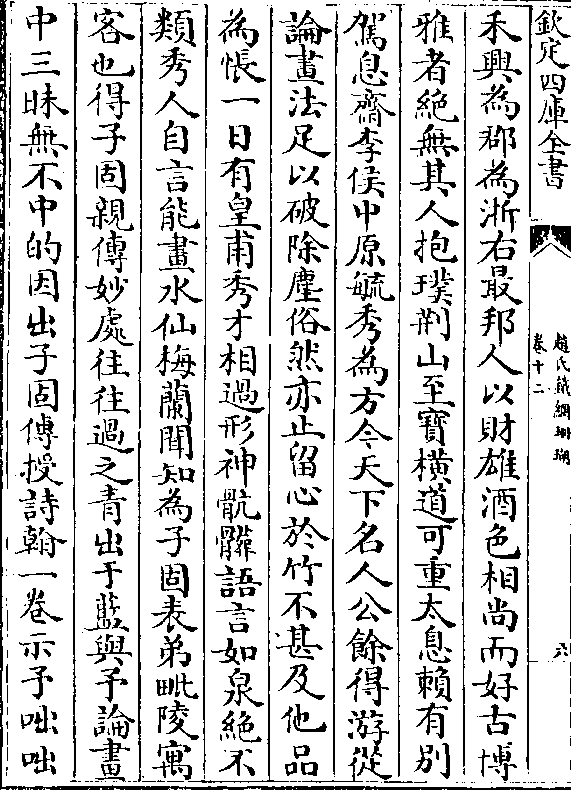 欽定四庫全書
趙氏鐵網珊瑚
卷十二
六
禾興為郡為浙右最邦人以財雄酒色相尚而好古博
雅者絶無其人抱璞荆山至寳横道可重太息賴有别
駕息齋李侯中原毓秀為方今天下名人公餘得游從
論畫法足以破除塵俗然亦止留心於竹不甚及他品
為悵一日有皇甫秀才相過形神骯髒語言如泉絶不
類秀人自言能畫水仙梅蘭聞知為子固表弟毗陵寓
客也得子固親傳妙處往往過之青出于藍與予論畫
中三昧無不中的因出子固傳授詩翰一卷示予咄咄